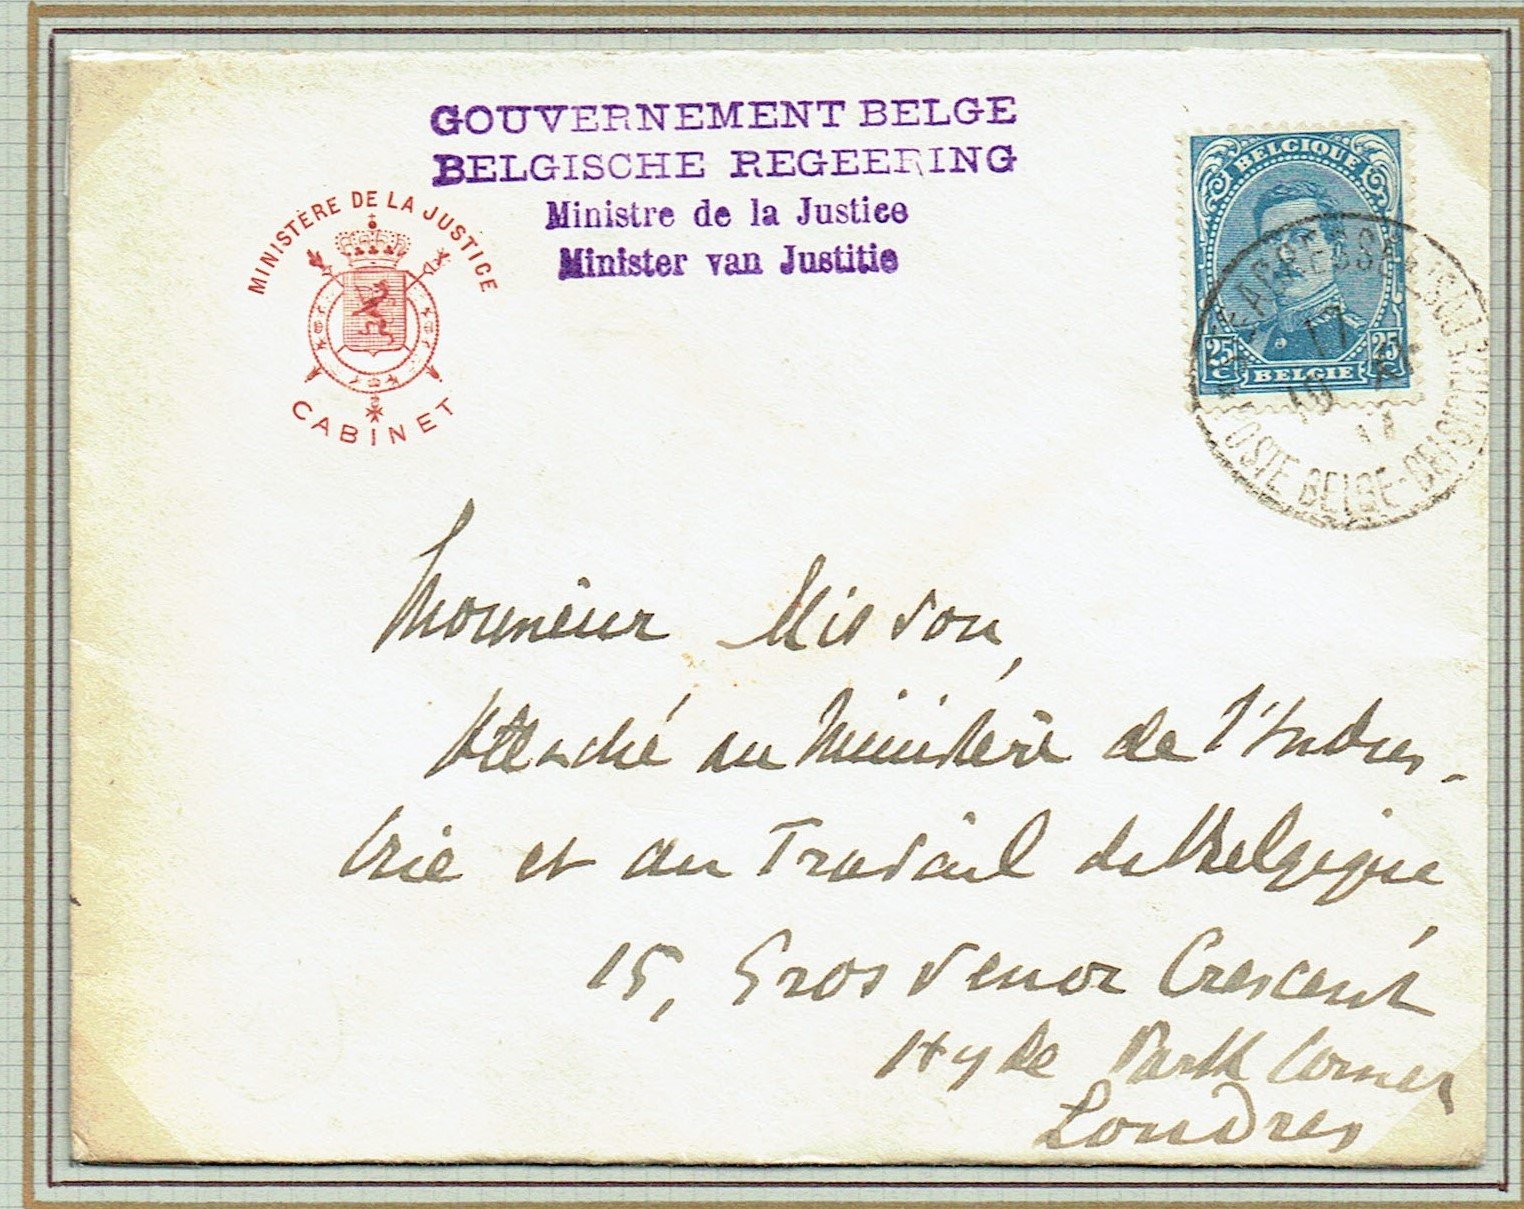 GOUVERNEMENT BELGE
BELGISCHE REGEERING
Ministre de la Justice
Minister van Justitie
MINISTÈRE DE LA JUSTICE
CABINET
BELGIQUE
25 C 25 C
BELGIE
17
OSTE BELGE-BELGISCHE
Monsieur Misson,
Attaché au Ministère de l'Indus-
trie et au Travail de Belgique,
15, Grosvenor Crescent
Hyde Park Corner
Londres